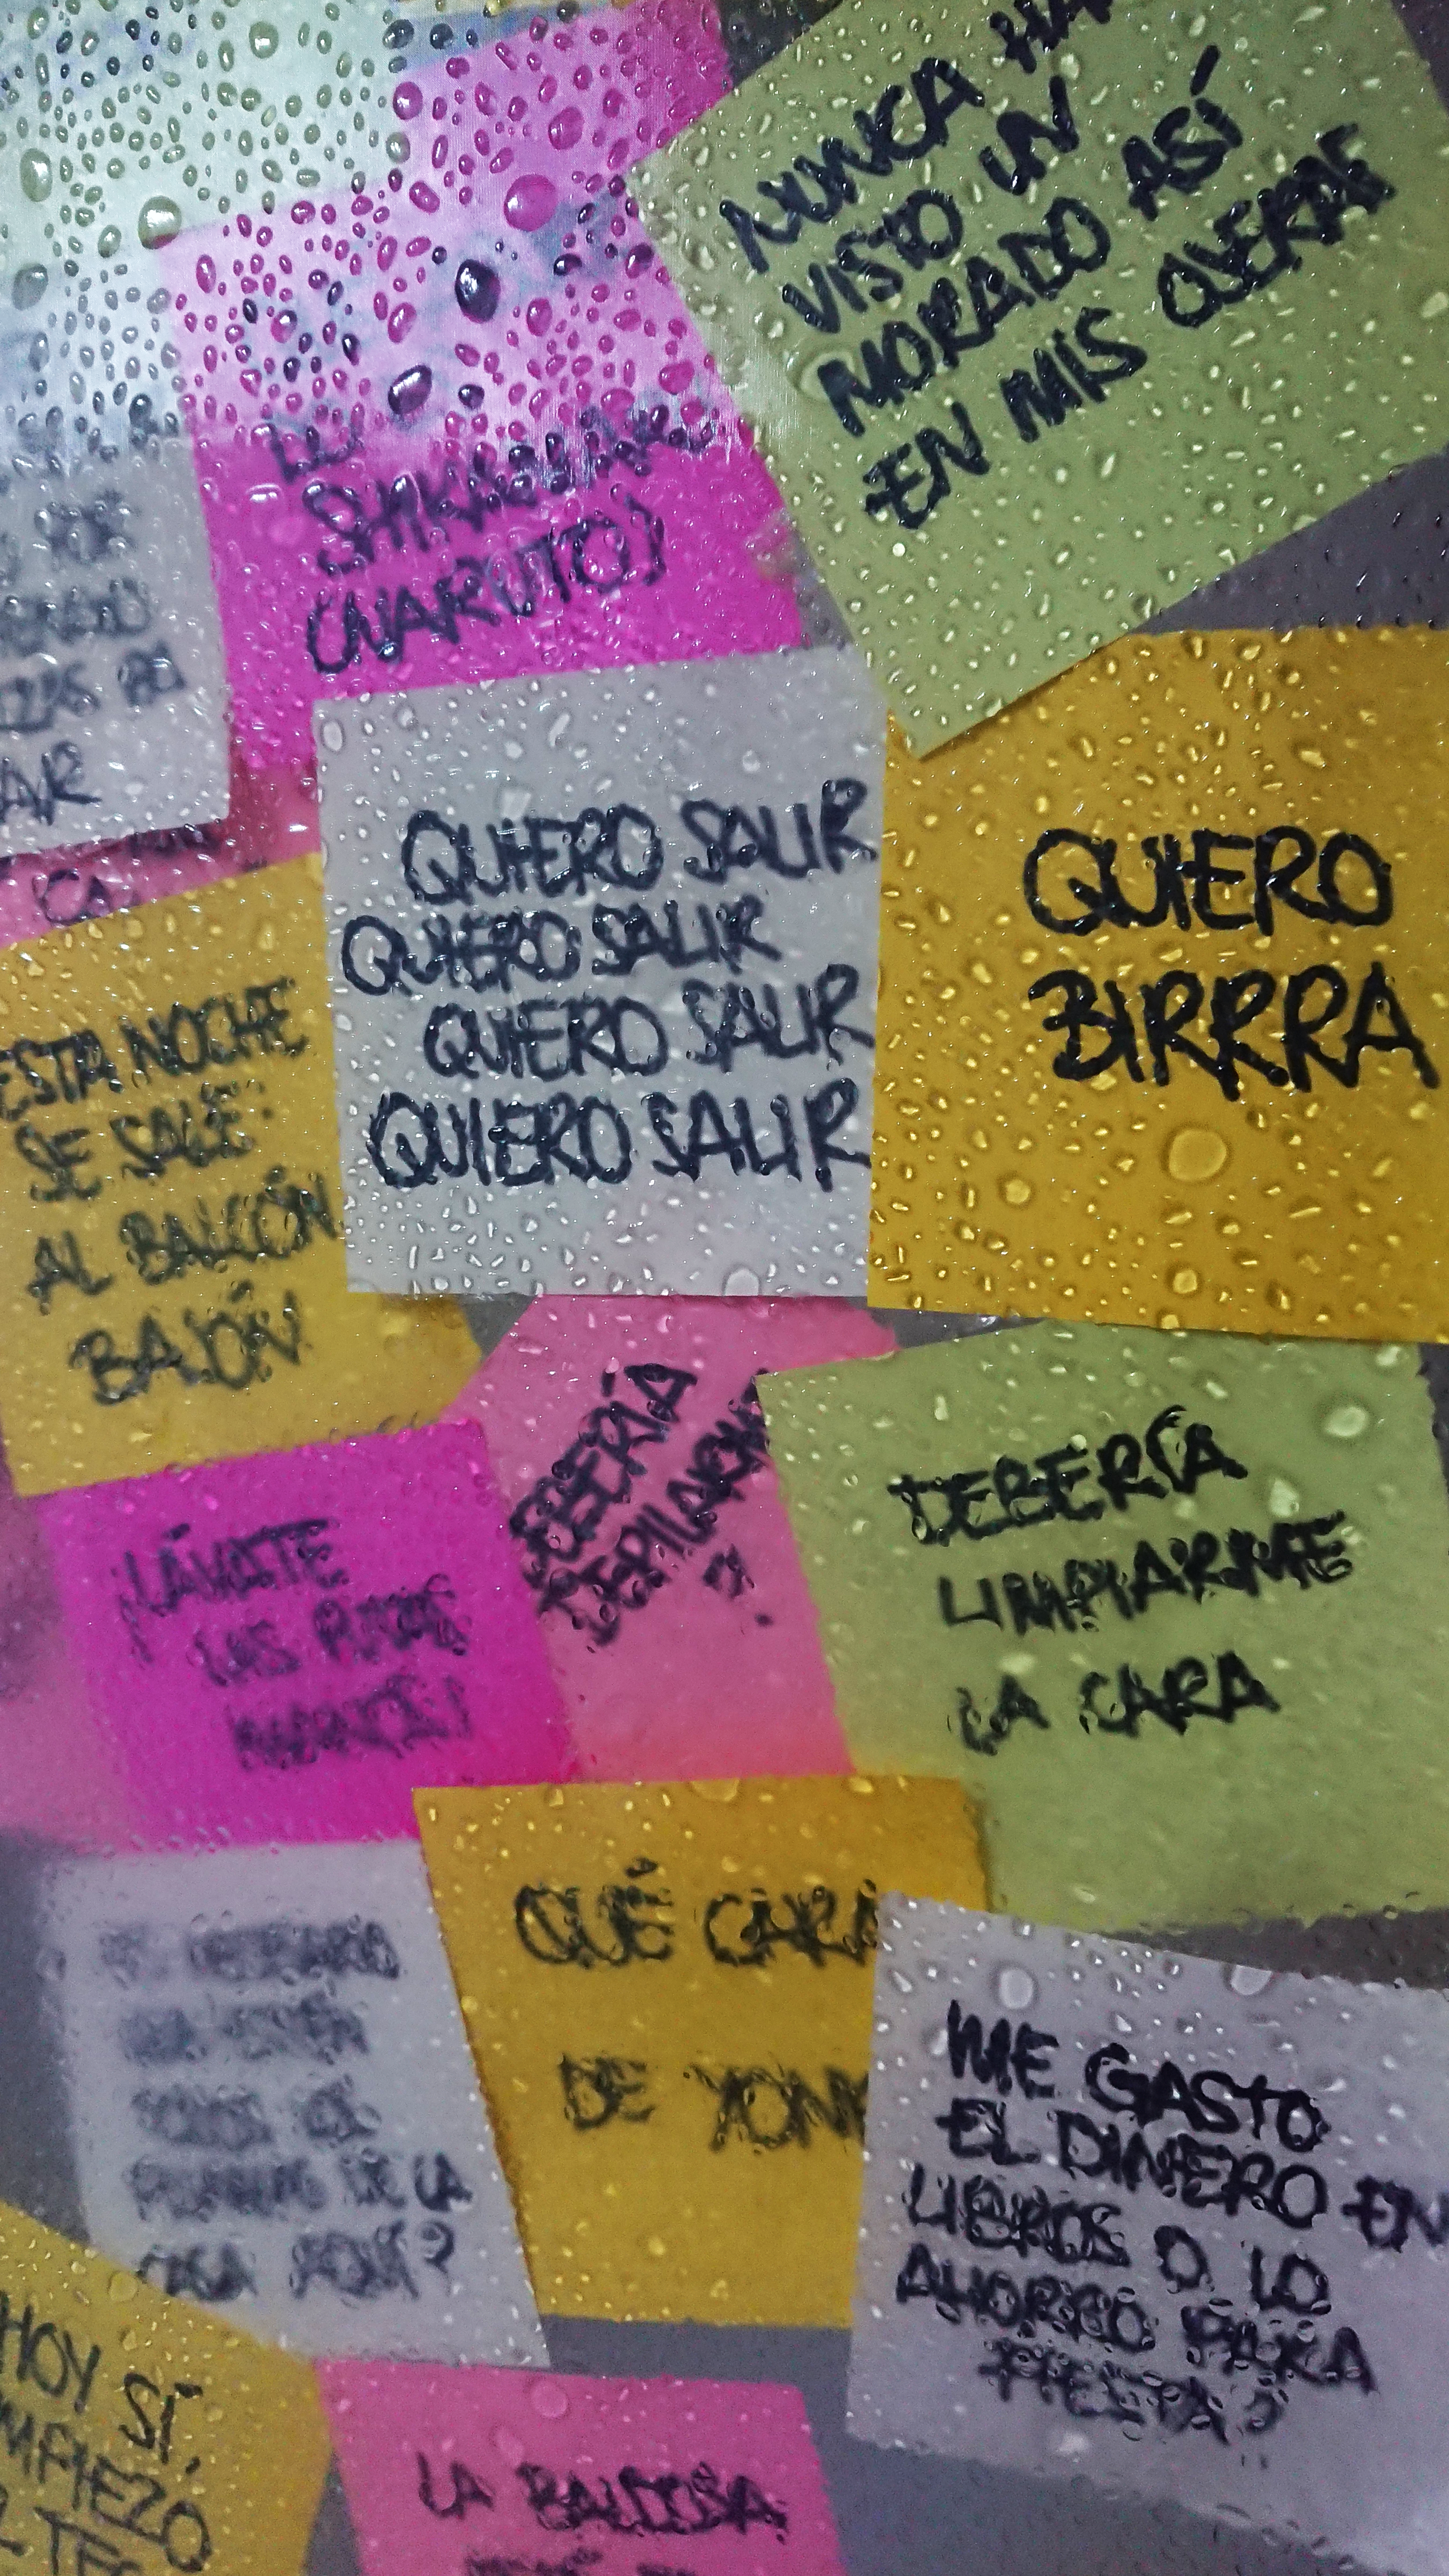 NUNCA HA
VISTO UN
MORADO ASÍ
EN MIS OJERAS
DE
SHIKAMARU
(NARUTO)
AR
CA
QUIERO SALIR
QUIERO SALIR
QUIERO SALIR
QUIERO SALIR
QUIERO
BIRRRA
ESTA NOCHE
SE SALE:
AL BALCÓN
BAJÓN
DEBERÍA
DEPILARME
DEBERÍA
LIMPIARME
LA CARA
¡LÁVATE
LAS
QUÉ CARA
DE YONK
DE LA
ME GASTO
EL DINERO EN
LIBROS O LO
AHORRO PARA
FIESTA?
HOY SÍ,
MPIEZO
LA BALDOSA